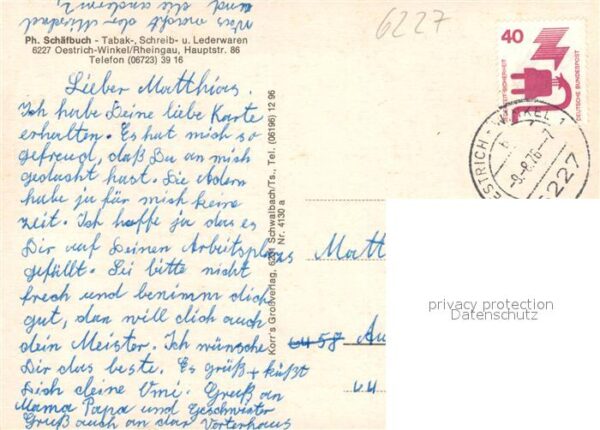 6227
Ph. Schäfbuch - Tabak-, Schreib- u. Lederwaren
6227 Oestrich-Winkel/Rheingau, Hauptstr. 86
Telefon (06723) 39 16
Lieber Matthias.
Ich habe Deine liebe Karte
erhalten. Es hat mich so
gefreud, daß Du an mich
gedacht hast. Die Adern
habe ja für mich keine
zeit. Ich hoffe ja das es
Dir auf Deinen Arbeitsplatz
gefällt. Sei bitte nicht
frech und benimm dich
gut, dan will dich auch
dein Meister. Ich wünsche
Dir das beste. Es grüß + küßt
Dich deine Omi. Gruß an
Mama Papa und Geschwister
Gruß auch an das Vorterhaus
und die anderen
Korr's Großverlag, 6231 Schwalbach/Ts., Tel. (06196) 12 95
Nr. 4130 a
40
DEUTSCHE BUNDESPOST
ESTRICH-WINKEL 1
-9.-8.76-7
6227
Matt
6457 Au
privacy protection
Datenschutz